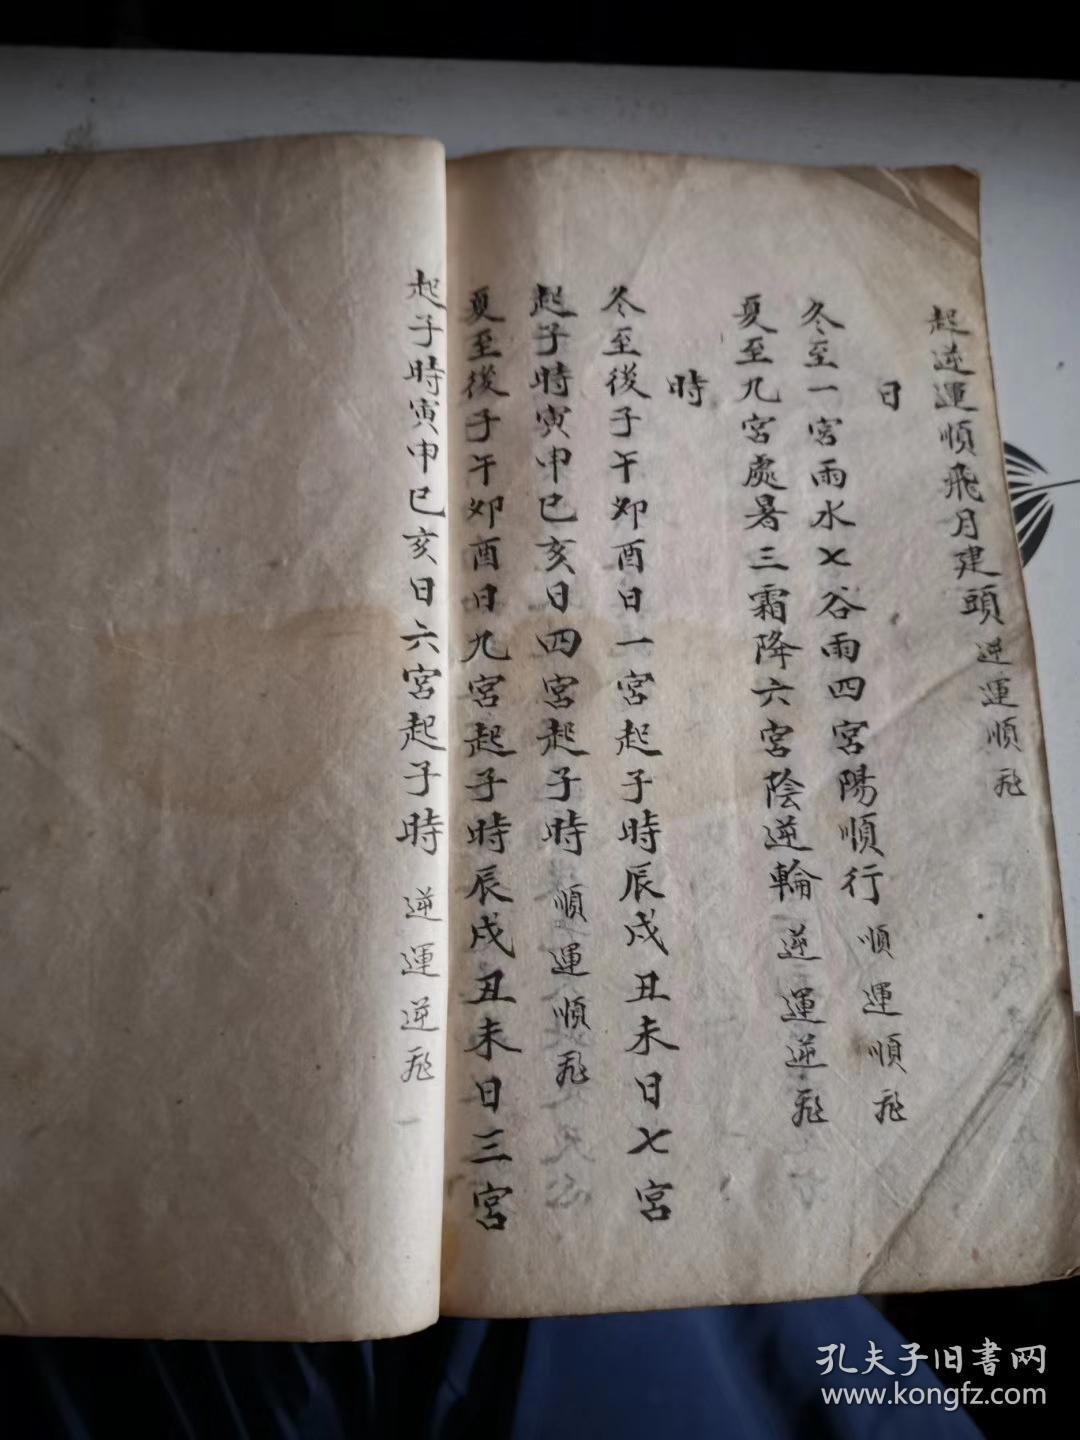 起逆運順飛月建頭 逆運順飛
日
冬至一宮雨水七谷雨四宮陽順行 順運順飛
夏至九宮處暑三霜降六宮陰逆輪 逆運逆飛
時
冬至後子午卯酉日一宮起子時辰戌丑未日七宮
起子時寅申巳亥日四宮起子時 順運順飛
夏至後子午卯酉日九宮起子時辰戌丑未日三宮
起子時寅申巳亥日六宮起子時 逆運逆飛
孔夫子旧書网
www.kongfz.com